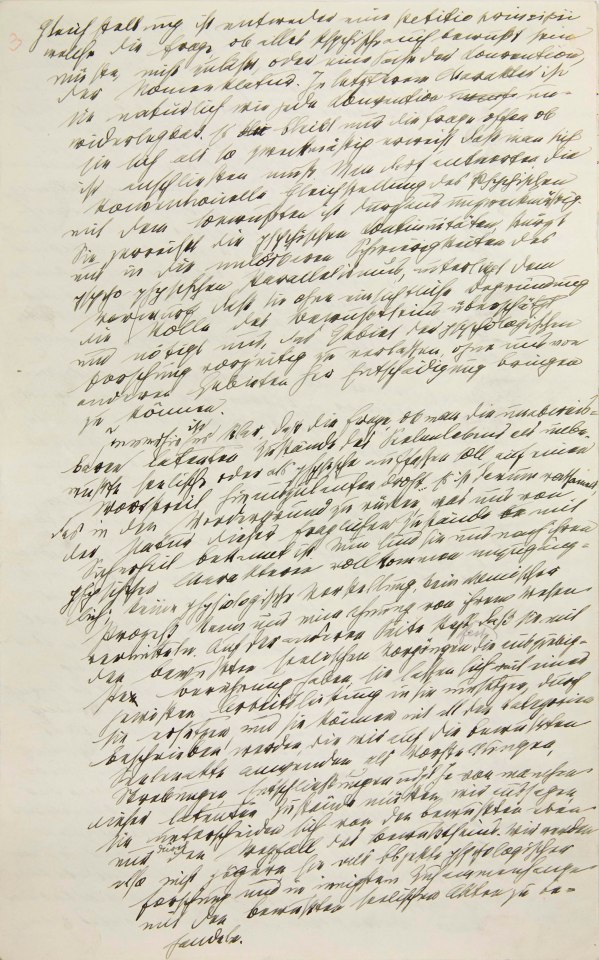 3
Gleichstellung ist entweder eine petitio principii
welche die Frage, ob alles Psychische auch bewusst sein
müsse, nicht zulässt oder eine Sache der Konvention,
der Nomenklatur. In letzterem Charakter ist
sie natürlich wie jede Konvention un-
widerlegbar. Es bleibt nur die Frage offen ob
sie sich als so zweckmässig erweist dass man sich
ihr anschliessen muss. Man darf antworten die
konventionelle Gleichstellung des Psychischen
mit dem Bewussten ist durchaus unzweckmässig.
Sie zerreisst die psychischen Kontinuitäten, stürzt
uns in die unlösbaren Schwierigkeiten des
psycho physischen Parallelismus, unterliegt dem
Vorwurf, dass sie ohne einsichtliche Begründung
die Rolle des Bewusstseins überschätzt
und nötigt uns, das Gebiet der psychologischen
Forschung vorzeitig zu verlassen, ohne uns von
anderen Gebieten her Entschädigung bringen
zu können.
Immerhin ist es klar, dass die Frage ob man die unabweis-
baren latenten Zustände des Seelenlebens als unbe-
wusste seelische oder als physische auffassen soll auf einen
Wortstreit hinauszulaufen droht. Es ist darum ratsam,
das in den Vordergrund zu rücken was uns von
der Natur dieser fraglichen Zustände mit
Sicherheit bekannt ist. Nun sind sie uns nach ihren
physischen Charakteren vollkommen unzugäng-
lich; keine physiologische Vorstellung, kein chemischer
Prozess kann uns eine Ahnung von ihrem Wesen
vermitteln. Auf der anderen Seite steht fest, dass sie mit
den bewussten seelischen Vorgängen die ausgiebig-
ste Berührung haben; sie lassen sich mit einer
gewissen Arbeitsleistung in sie umsetzen, durch
sie ersetzen und sie können mit all den Kategorien
beschrieben werden, die wir auf die bewussten
Seelenakte anwenden als Vorstellungen,
Strebungen, Entschliessungen udgl Ja von manchen
dieser latenten Zustände müssen wir aussagen
sie unterscheiden sich von den bewussten eben
nur durch den Wegfall des Bewusstseins. Wir werden
also nicht zögern sie als Objekte psychologischer
Forschung und in innigstem Zusammenhange
mit den bewussten seelischen Akten zu be-
handeln.